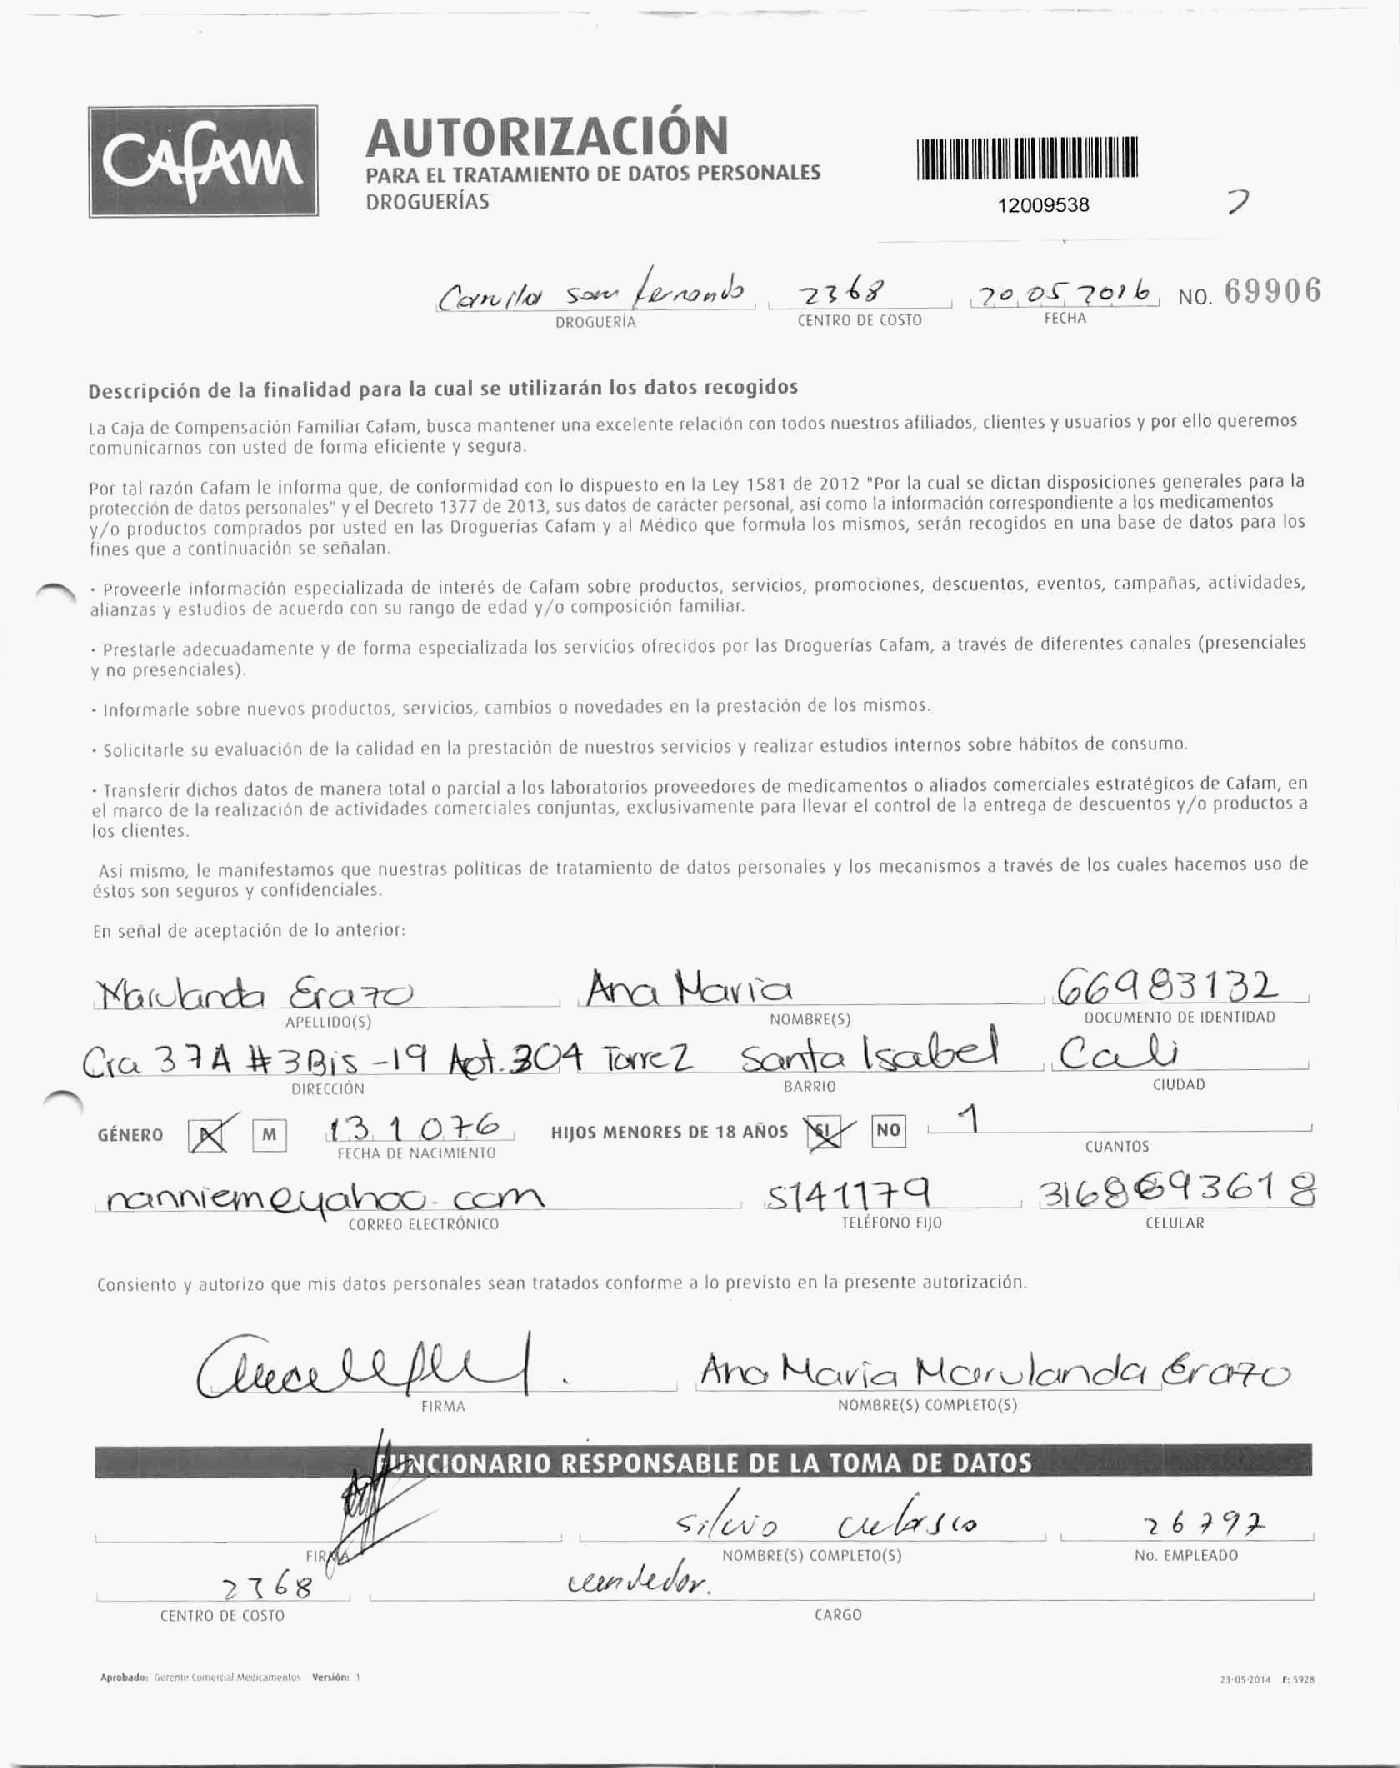 CAFAM
AUTORIZACIÓN
PARA EL TRATAMIENTO DE DATOS PERSONALES
DROGUERÍAS
12009538
2368 20 05 2016 NO. 69906
DROGUERÍA CENTRO DE COSTO FECHA
Descripción de la finalidad para la cual se utilizarán los datos recogidos
La Caja de Compensación Familiar Cafam, busca mantener una excelente relación con todos nuestros afiliados, clientes y usuarios y por ello queremos
comunicarnos con usted de forma eficiente y segura.
Por tal razón Cafam le informa que, de conformidad con lo dispuesto en la Ley 1581 de 2012 "Por la cual se dictan disposiciones generales para la
protección de datos personales" y el Decreto 1377 de 2013, sus datos de carácter personal, así como la información correspondiente a los medicamentos
y/o productos comprados por usted en las Droguerías Cafam y al Médico que formula los mismos, serán recogidos en una base de datos para los
fines que a continuación se señalan.
· Proveerle información especializada de interés de Cafam sobre productos, servicios, promociones, descuentos, eventos, campañas, actividades,
alianzas y estudios de acuerdo con su rango de edad y/o composición familiar.
· Prestarle adecuadamente y de forma especializada los servicios ofrecidos por las Droguerías Cafam, a través de diferentes canales (presenciales
y no presenciales).
· Informarle sobre nuevos productos, servicios, cambios o novedades en la prestación de los mismos.
· Solicitarle su evaluación de la calidad en la prestación de nuestros servicios y realizar estudios internos sobre hábitos de consumo.
· Transferir dichos datos de manera total o parcial a los laboratorios proveedores de medicamentos o aliados comerciales estratégicos de Cafam, en
el marco de la realización de actividades comerciales conjuntas, exclusivamente para llevar el control de la entrega de descuentos y/o productos a
los clientes.
Así mismo, le manifestamos que nuestras políticas de tratamiento de datos personales y los mecanismos a través de los cuales hacemos uso de
éstos son seguros y confidenciales.
En señal de aceptación de lo anterior:
Marulanda Erazo Ana Maria 66983132
APELLIDO(S) NOMBRE(S) DOCUMENTO DE IDENTIDAD
Cra 37A # 3Bis -19 Apt. 304 Torre 2 Santa Isabel Cali
DIRECCIÓN BARRIO CIUDAD
GÉNERO M 13 10 76 HIJOS MENORES DE 18 AÑOS SI NO 1
FECHA DE NACIMIENTO CUANTOS
nanniem@yahoo.com 5141179 3168693618
CORREO ELECTRÓNICO TELÉFONO FIJO CELULAR
Consiento y autorizo que mis datos personales sean tratados conforme a lo previsto en la presente autorización.
Ana Maria Marulanda Erazo
FIRMA NOMBRE(S) COMPLETO(S)
FUNCIONARIO RESPONSABLE DE LA TOMA DE DATOS
Silvio 26792
FIRMA NOMBRE(S) COMPLETO(S) No. EMPLEADO
2368 vendedor.
CENTRO DE COSTO CARGO
Aprobado: Gerente Comercial Medicamentos Versión: 1 23-05-2014 F: 5928